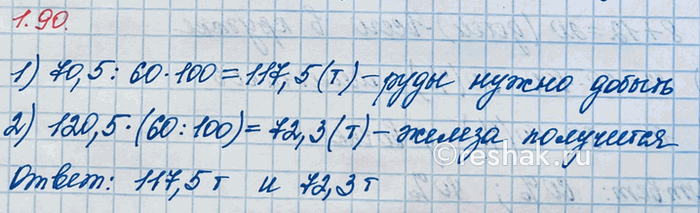 1.90.
1) 70,5 : 60 · 100 = 117,5 (т) – руды нужно добыть
2) 120,5 · (60 : 100) = 72,3 (т) – железа получится
Ответ: 117,5 т и 72,3 т
©reshak.ru